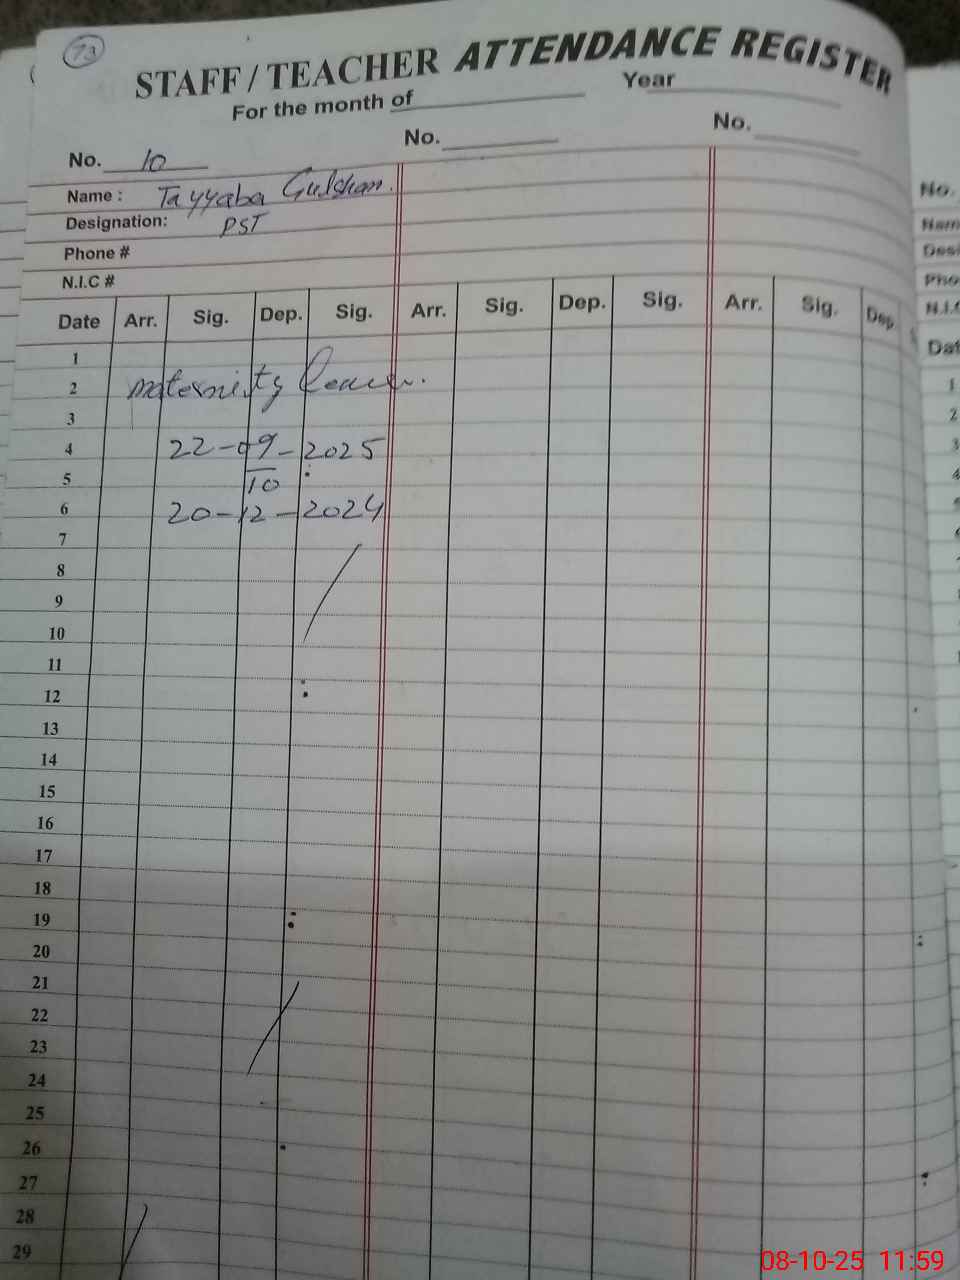 73
STAFF / TEACHER ATTENDANCE REGISTER
For the month of Year
No. 10 No. No.
Name : Tayyaba Gulshan.
Designation: PST
Phone #
N.I.C #
Date Arr. Sig. Dep. Sig. Arr. Sig. Dep. Sig. Arr. Sig. Dep.
1
2 maternity leave.
3
4 22-09-2025
5 10
6 20-12-2024
7
8
9
10
11
12
13
14
15
16
17
18
19
20
21
22
23
24
25
26
27
28
29
No.
Nam
Desi
Pho
N.I.C
Dat
1
2
3
4
5
08-10-25 11:59